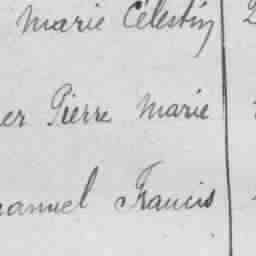 Marie Célestin
er Pierre Marie
anuel Francis